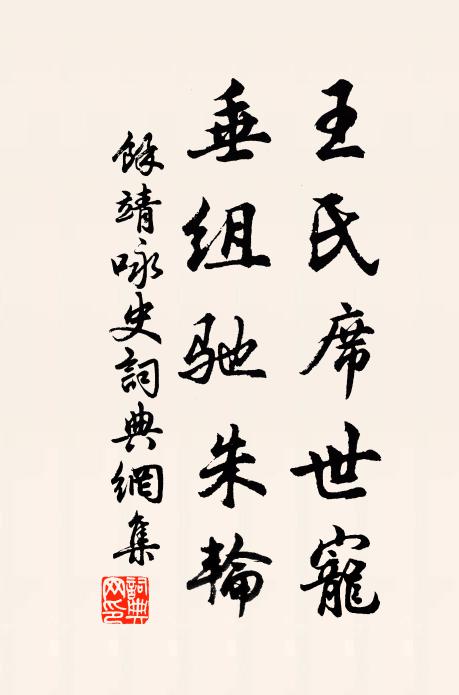 王氏席世寵
垂組馳朱輪
餘靖咏史詞典網集
詞典网印